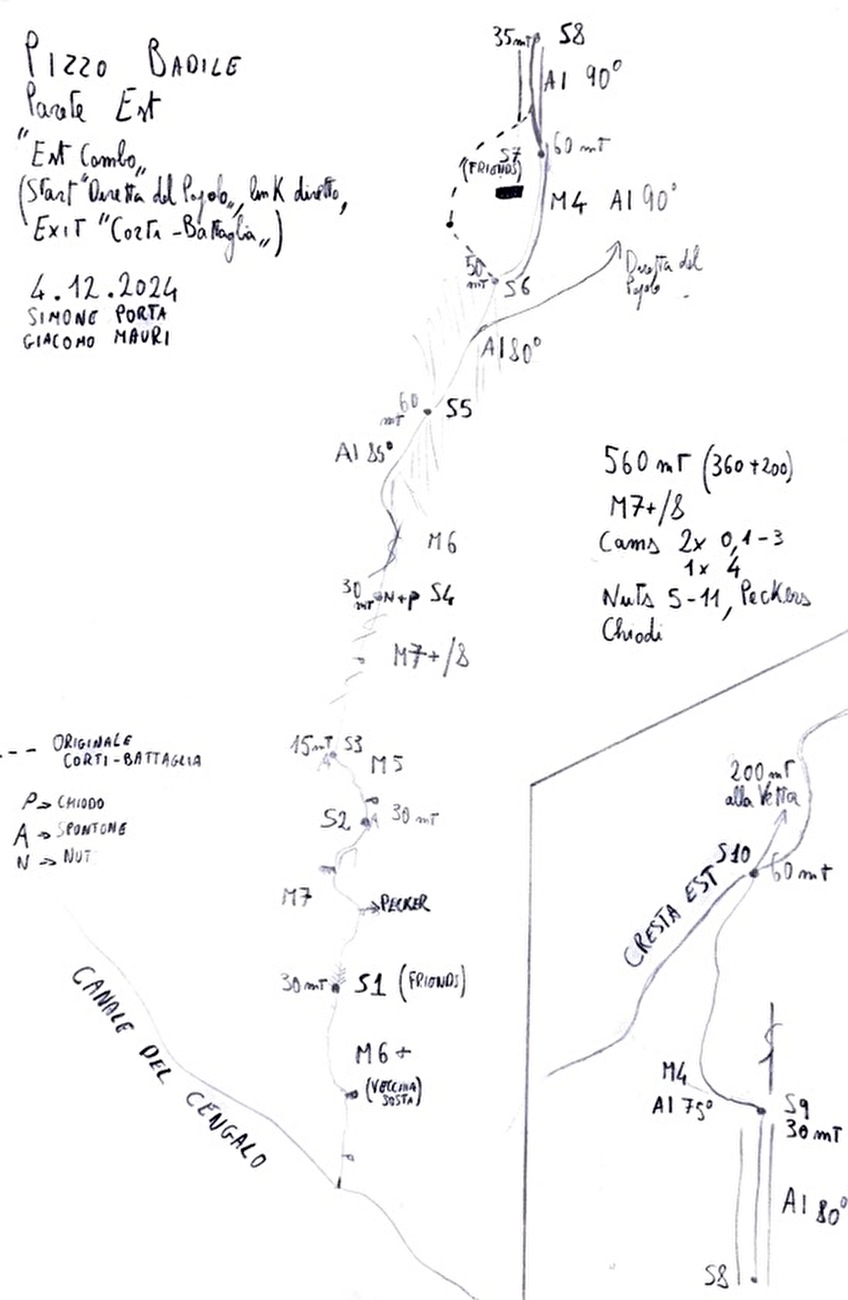 PIZZO BADILE
Parete Est
"Est Combo"
(Start "Diretta del Popolo", link diretto,
EXIT "Corti-Battaglia")
4.12.2024
SIMONE PORTA
GIACOMO MAURI
35mT S8
AI 90°
60 mT
S7
(FRIENDS)
M4 AI 90°
Diretta del
Popolo
50
mT S6
AI 80°
60
mT S5
AI 85°
560 mT (360+200)
M7+/8
Cams 2x 0,1-3
1x 4
Nuts 5-11, Peckers
Chiodi
M6
30
mT N+P S4
M7+/8
--- ORIGINALE
CORTI-BATTAGLIA
P → CHIODO
A → SPONTONE
N → NUT
15mT S3
A
M5
S2 A 30 mT
M7
PECKER
30mT S1 (FRIENDS)
M6+
(VECCHIA
SOSTA)
CANALE DEL CENGALO
200 mT
alla Vetta
S10
60 mT
CRESTA EST
M4
AI 75°
S9
30 mT
AI 80°
S8